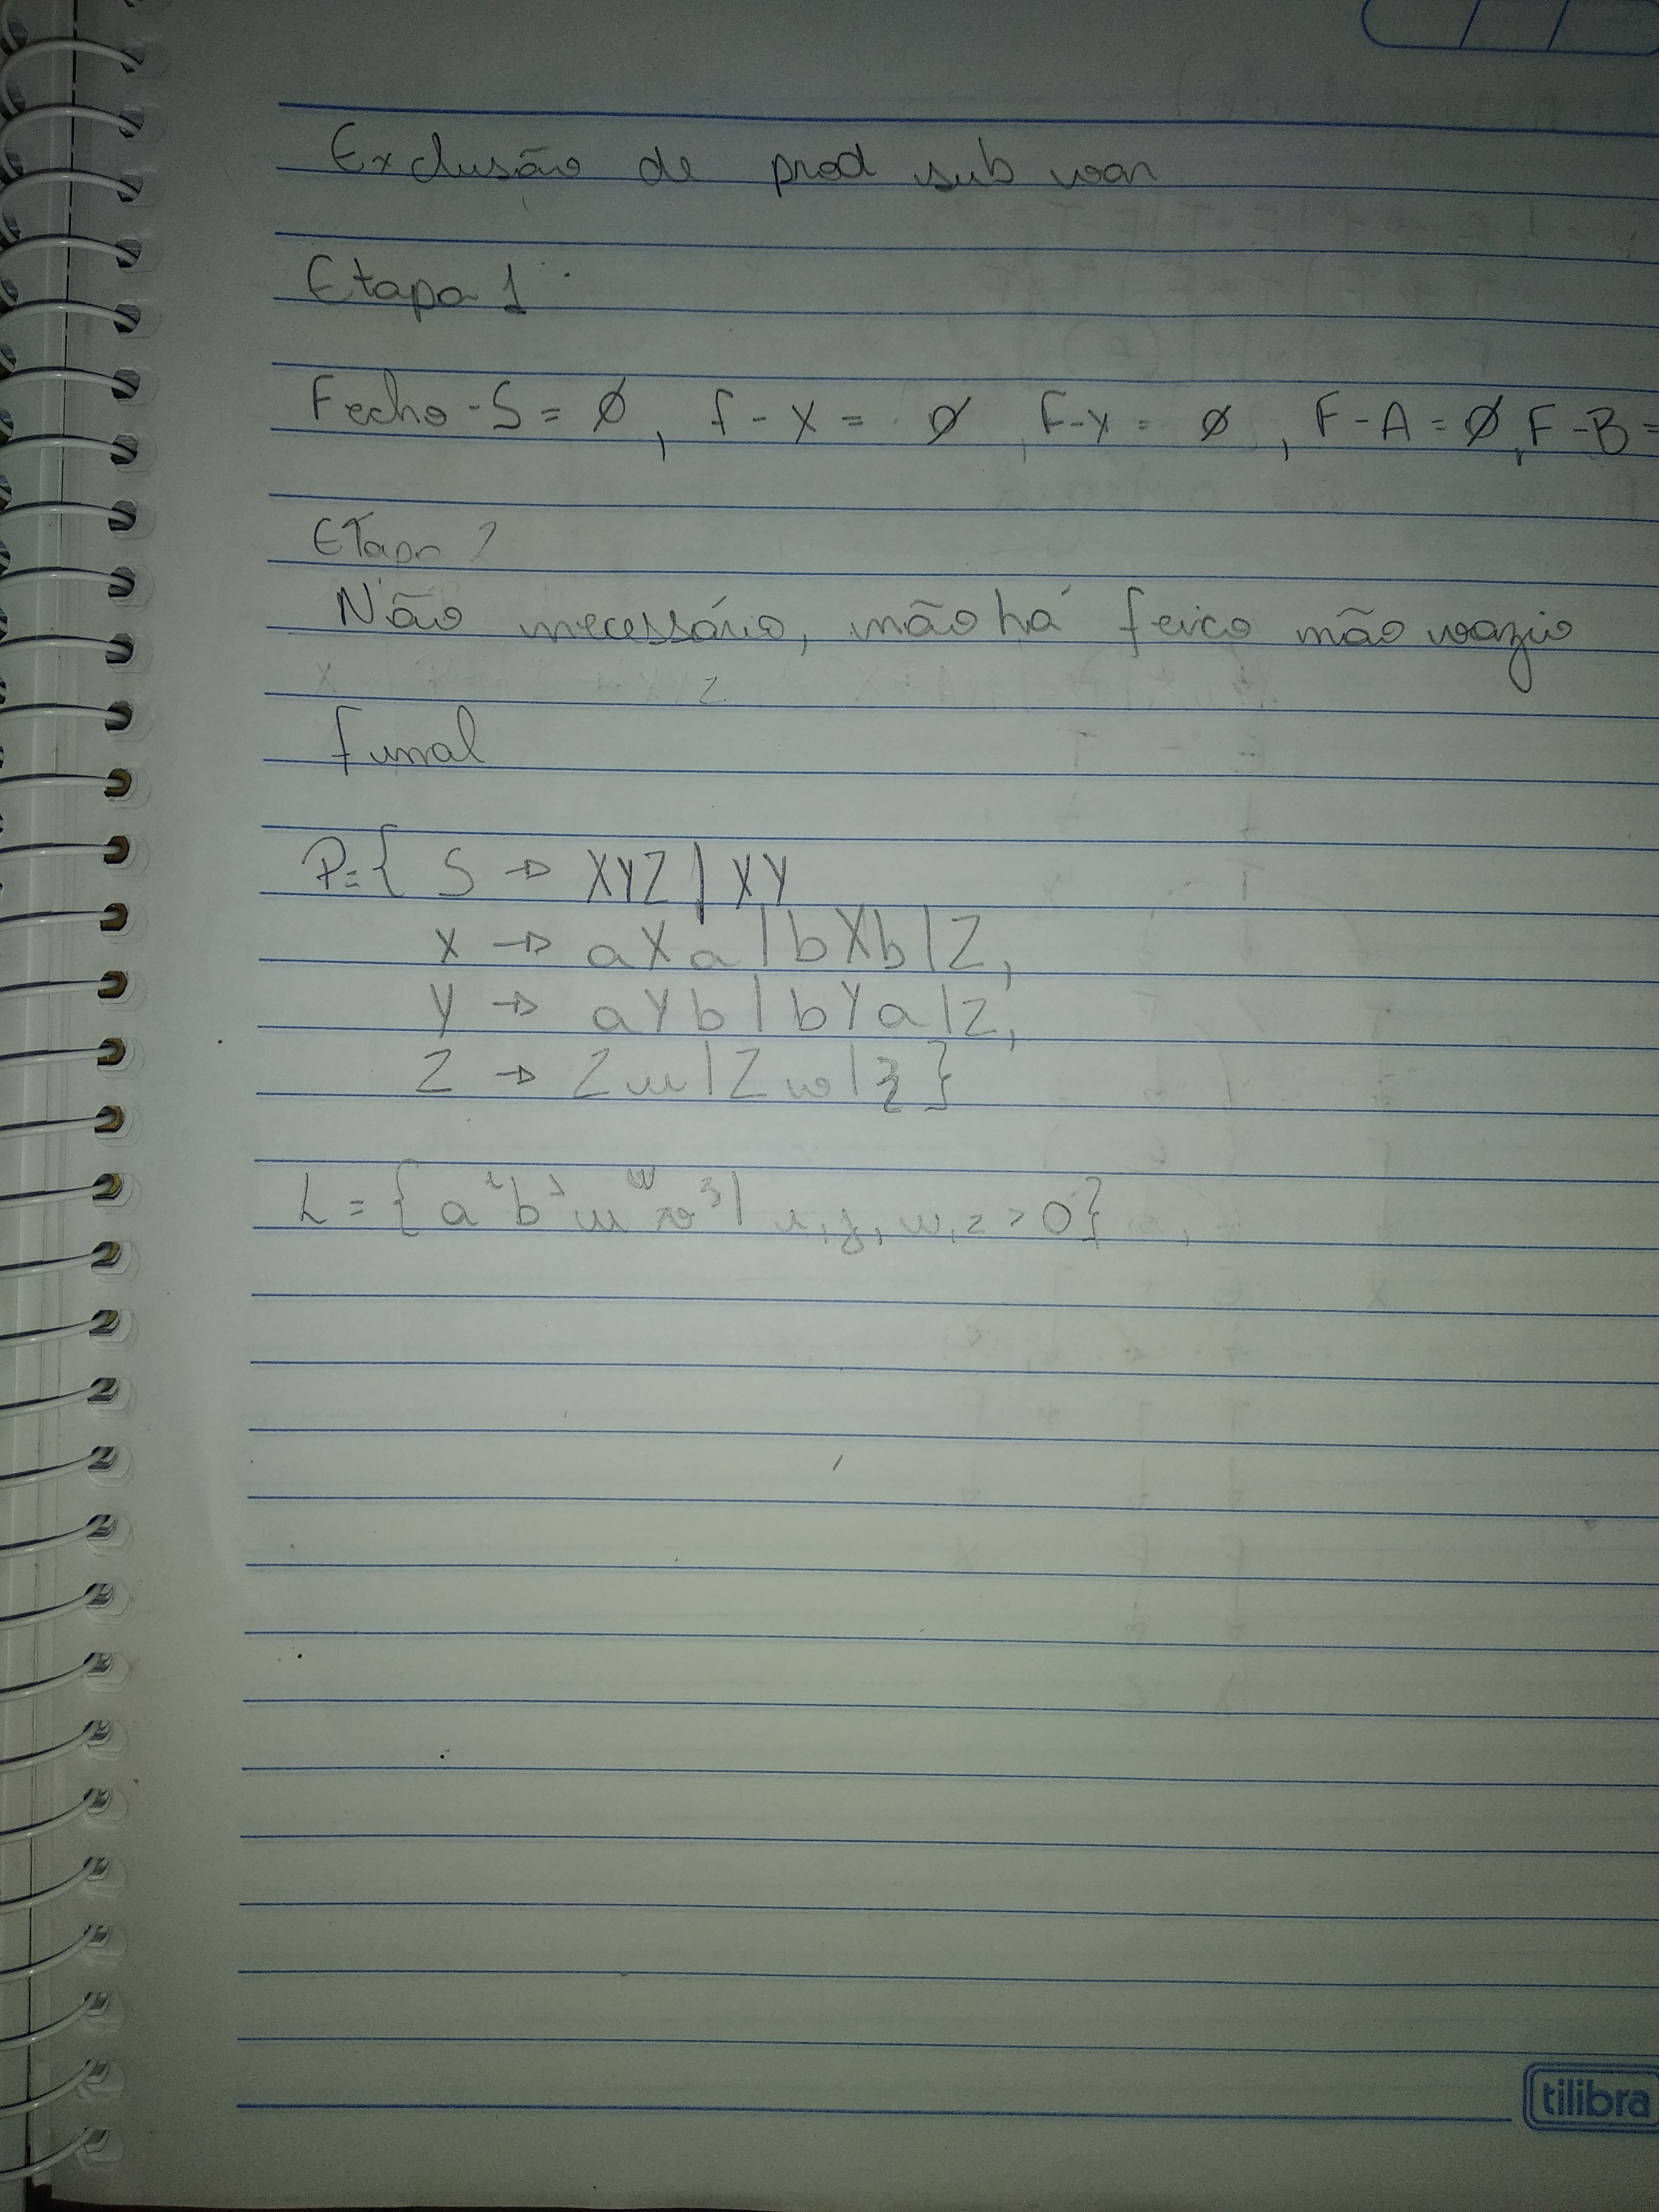 Exclusão de prod sub var
Etapa 1
Fecho - S = Ø, F - X = Ø, F - Y = Ø, F - A = Ø, F - B =
Etapa 2
Não necessário, não há feico não vazio
Final
P = { S → XYZ | XY
X → aXa | bXb | Z,
Y → aYb | bYa | Z,
Z → Zu | Zv | z }
L = { a b u v |
tilibra